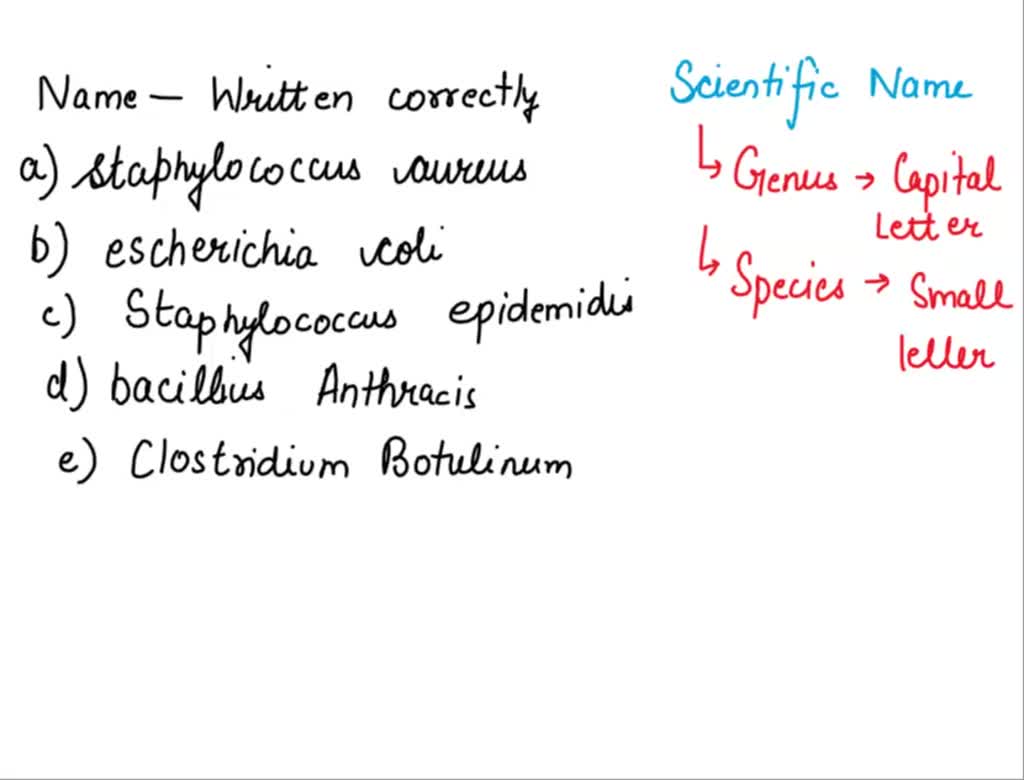 Name — Written correctly
a) staphylococcus aureus
b) escherichia coli
c) Staphylococcus epidemidis
d) bacillius Anthracis
e) Clostridium Botulinum
Scientific Name
↳ Genus → Capital
Letter
↳ Species → Small
letter